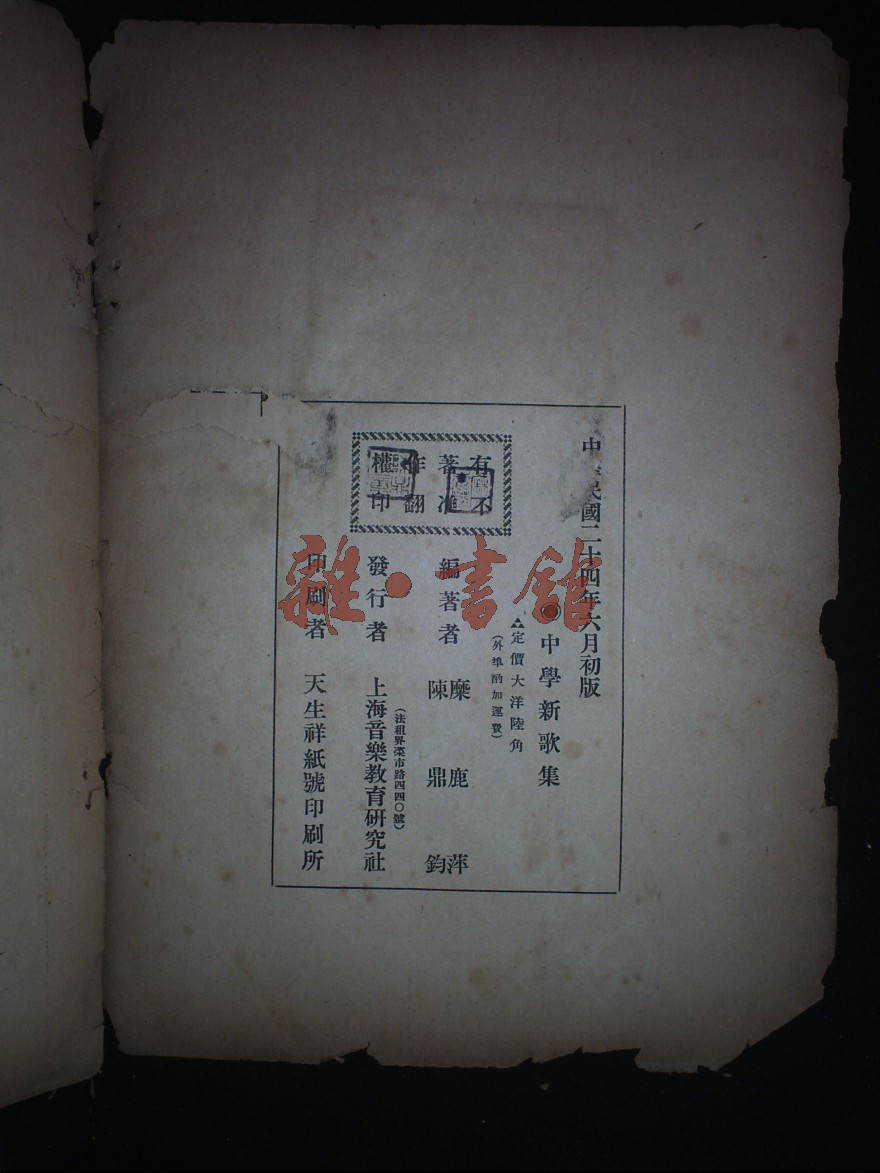 中華民國二十四年六月初版
●中學新歌集
定價大洋陸角
(外埠酌加運費)
有著作權
不准翻印
編著者 糜鹿萍
陳鼎鈞
發行者 上海音樂教育研究社
(法租界菜市路四四〇號)
印刷者 天生祥紙號印刷所
雜·書館